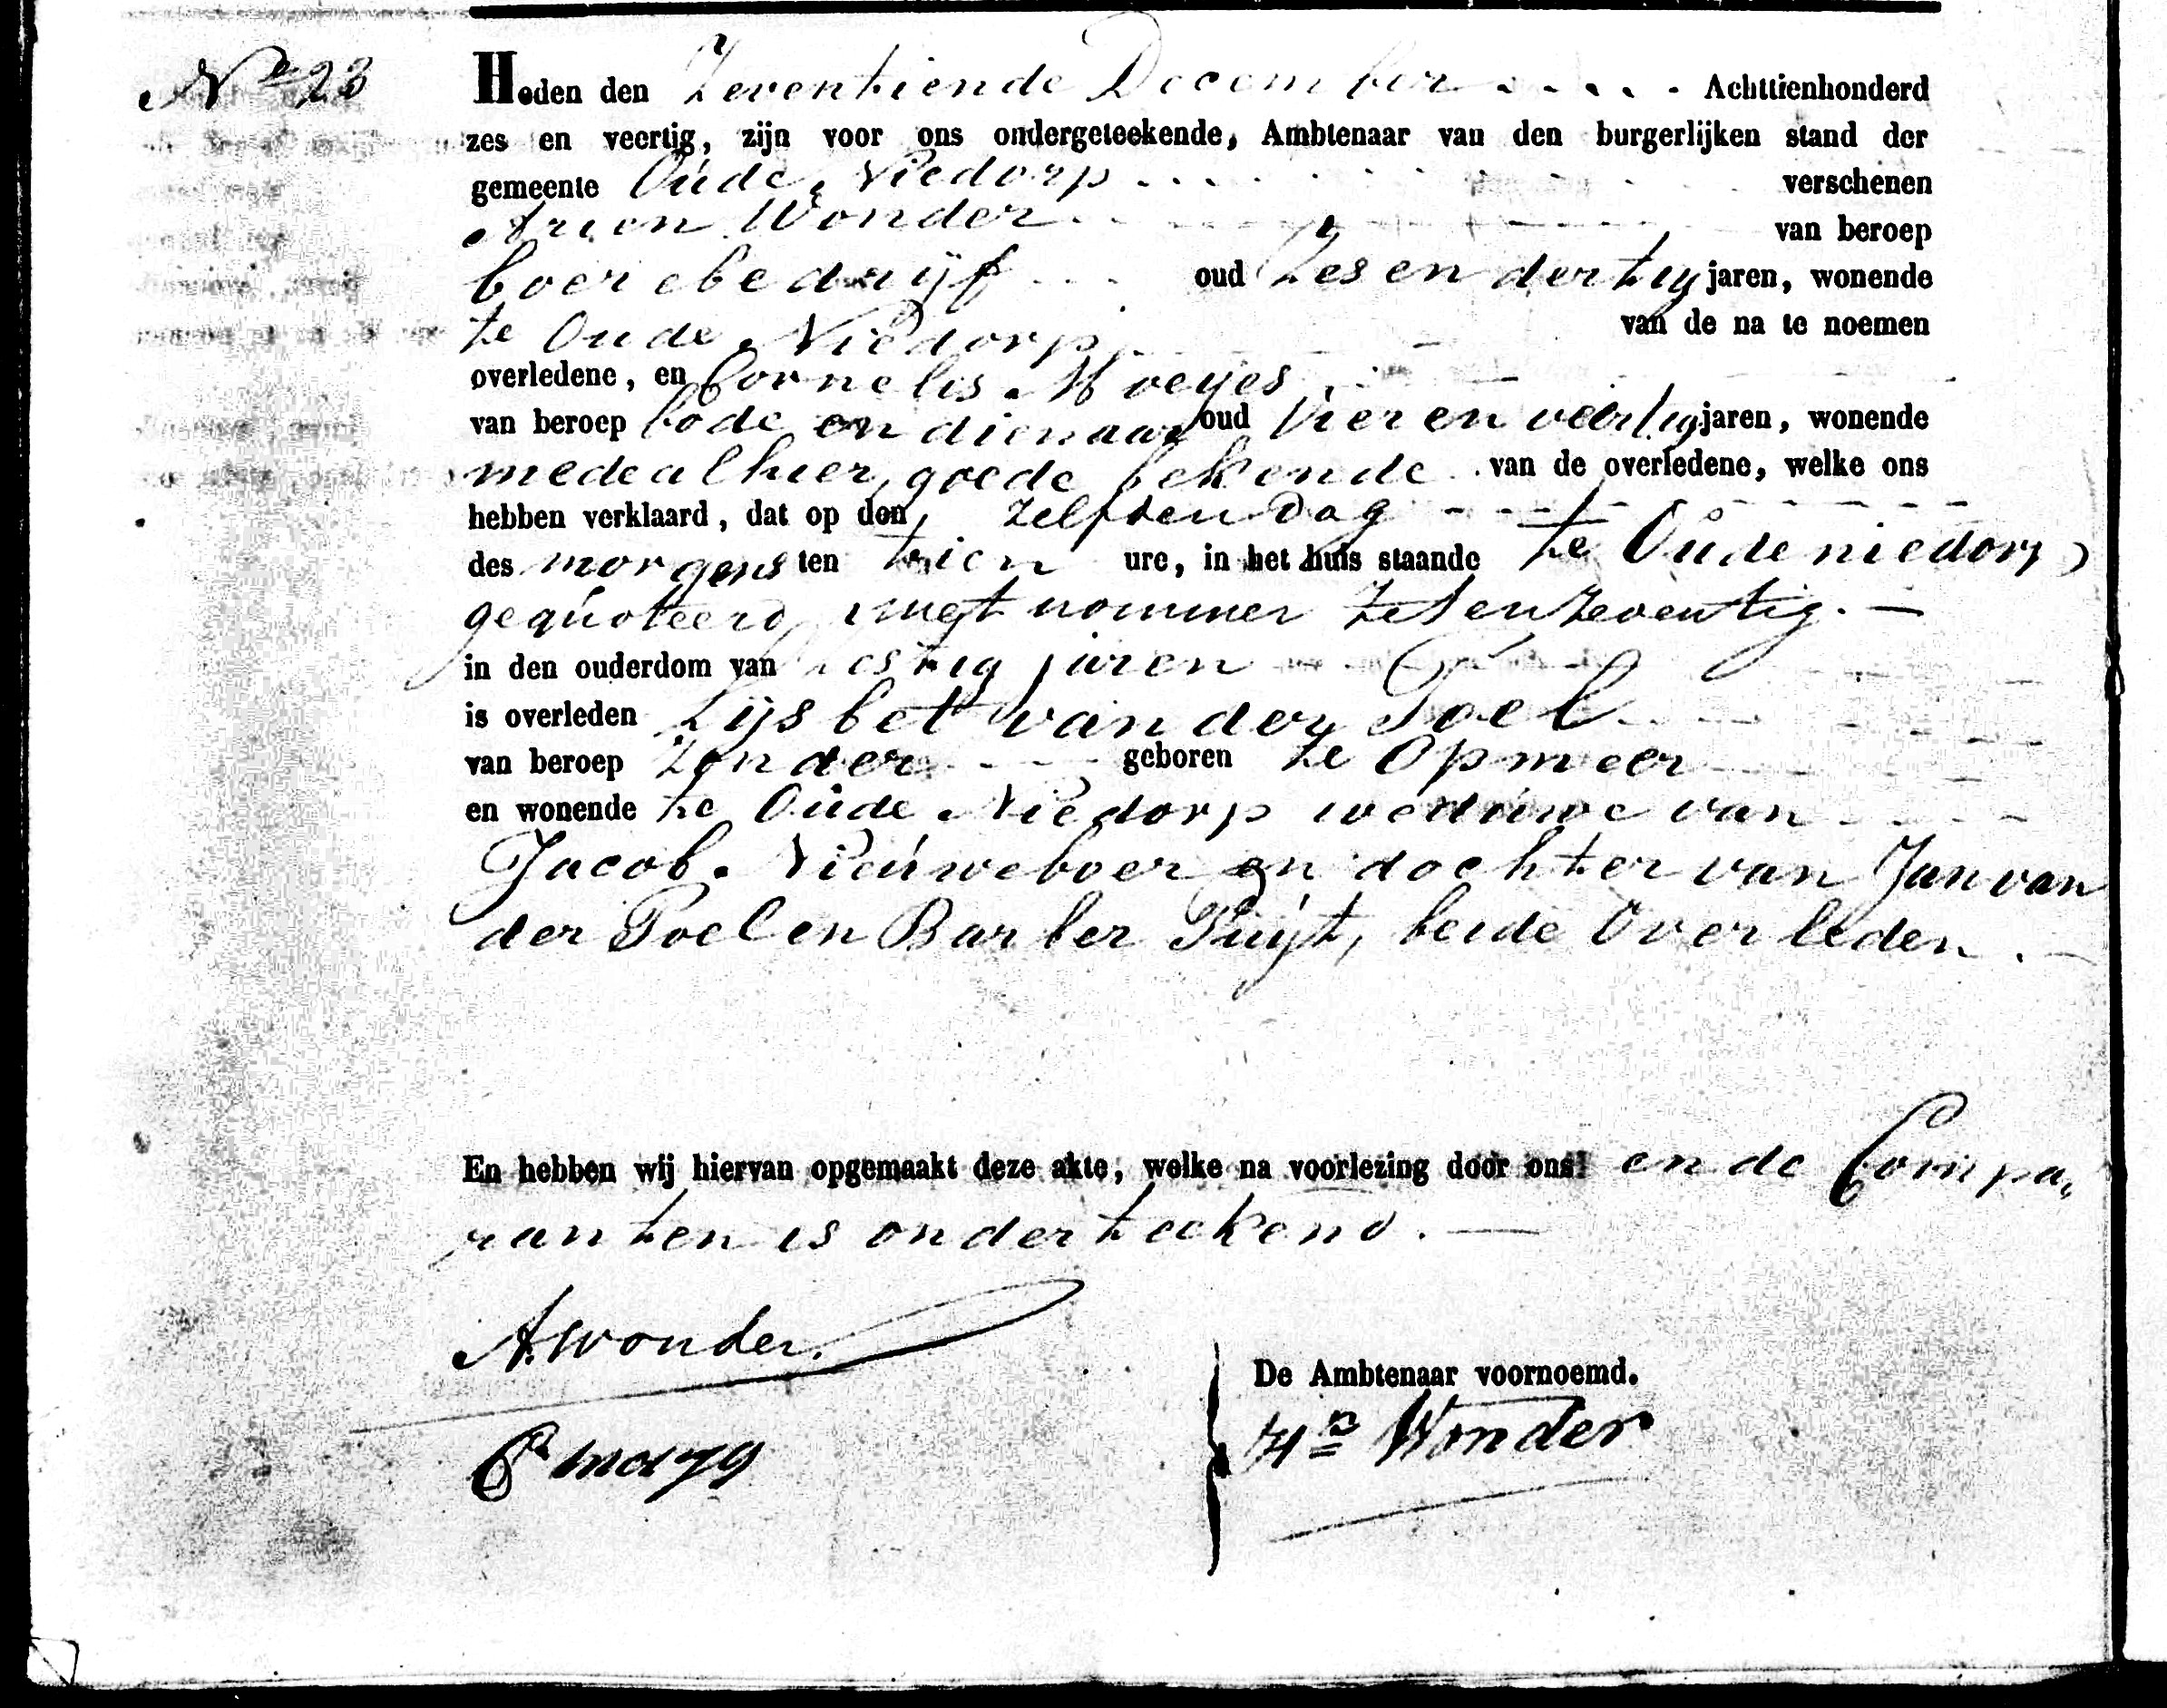 No 23
Heden den Zeventiende December Achttienhonderd
zes en veertig, zijn voor ons ondergeteekende, Ambtenaar van den burgerlijken stand der
gemeente Oude Niedorp verschenen
Arien Wonder van beroep
boerebedrijf oud Zes en dertig jaren, wonende
te Oude Niedorp van de na te noemen
overledene, en Cornelis Moeyes
van beroep bode en dienaar oud Vier en veertig jaren, wonende
mede alhier, goede bekende van de overledene, welke ons
hebben verklaard, dat op den zelfden Dag
des morgens ten tien ure, in het huis staande te Oude niedorp
gequoteerd met nommer Zes en Zeventig.
in den ouderdom van zestig jaren
is overleden Lijsbet van der Poel
van beroep Zonder geboren te Opmeer
en wonende te Oude Niedorp weduwe van
Jacob Nieuweboer en dochter van Jan van
der Poel en Barber Puijt, beide Overleden.
En hebben wij hiervan opgemaakt deze akte, welke na voorlezing door ons en de Compa,
ranten is onderteekend.
A. Wonder.
De Ambtenaar voornoemd.
Wonder